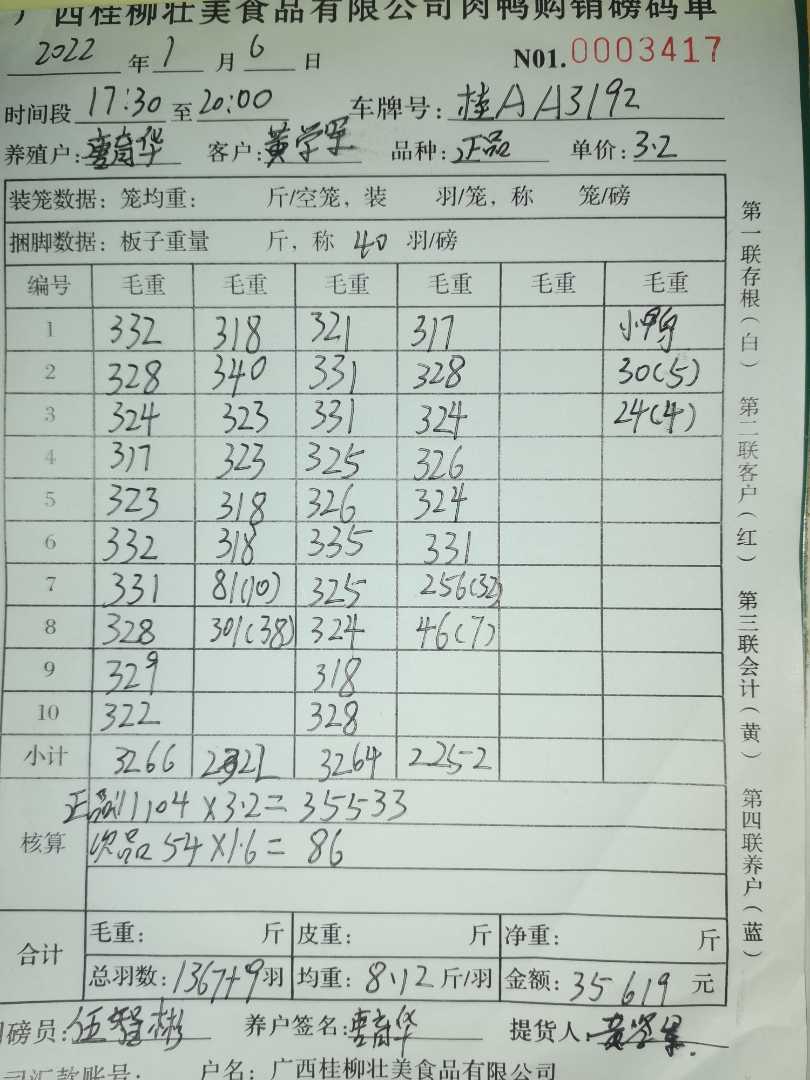 广西桂柳壮美食品有限公司肉鸭购销磅码单
2022 年 1 月 6 日 N01. 0003417
时间段 17:30 至 20:00 车牌号: 桂AA3192
养殖户: 育华 客户: 黄学军 品种: 正品 单价: 3.2
装笼数据: 笼均重: 斤/空笼, 装 羽/笼, 称 笼/磅
捆脚数据: 板子重量 斤, 称 40 羽/磅
编号 毛重 毛重 毛重 毛重 毛重 毛重
1 332 318 321 317 小鸭
2 328 340 331 328 30(5)
3 324 323 331 324 24(4)
4 317 323 325 326
5 323 318 326 324
6 332 318 335 331
7 331 81(10) 325 256(32)
8 328 301(38) 324 46(7)
9 329 318
10 322 328
小计 3266 2322 3264 2252
核算
正品11104×3.2=35533
次品54×1.6=86
合计
毛重: 斤 皮重: 斤 净重: 斤
总羽数: 1367+9 羽 均重: 8.12 斤/羽 金额: 35619 元
磅员: 伍智彬 养户签名: 育华 提货人: 黄学军
司汇款账号: 户名: 广西桂柳壮美食品有限公司
第一联存根(白) 第二联客户(红) 第三联会计(黄) 第四联养户(蓝)